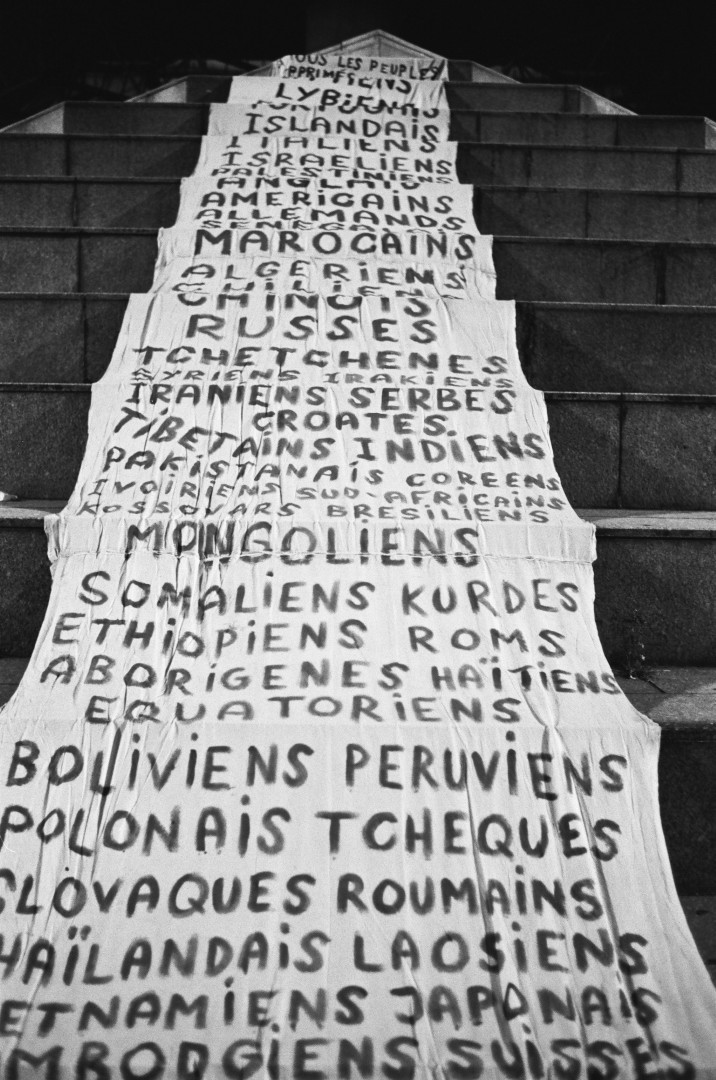 TOUS LES PEUPLES
OPPRIMES
LYBIENS
ISLANDAIS
ITALIENS
ISRAELIENS
PALESTINIENS
ANGLAIS
AMERiCAiNS
ALLEMANDS
SENEGALAIS
MAROCAiNS
ALGERiENS
CHiLiENS
CHINOIS
RUSSES
TCHETCHENES
SYRIENS IRAKiENS
IRANiENS SERBES
CROATES.
TiBETAiNS INDiENS
PAKiSTANAiS COREENS
IVOiRiENS SUD-AFRiCAiNS
KOSSOVARS BRESiLiENS
MONGOLiENS
SOMALiENS KURDES
ETHiOPiENS ROMS
ABORiGENES HAÏTiENS
EQUATORiENS
BOLiViENS PERUViENS
POLONAiS TCHEQUES
SLOVAQUES ROUMAiNS
HAÏLANDAiS LAOSiENS
ETNAMiENS JAPONAiS
MBODGiENS SUiSSES